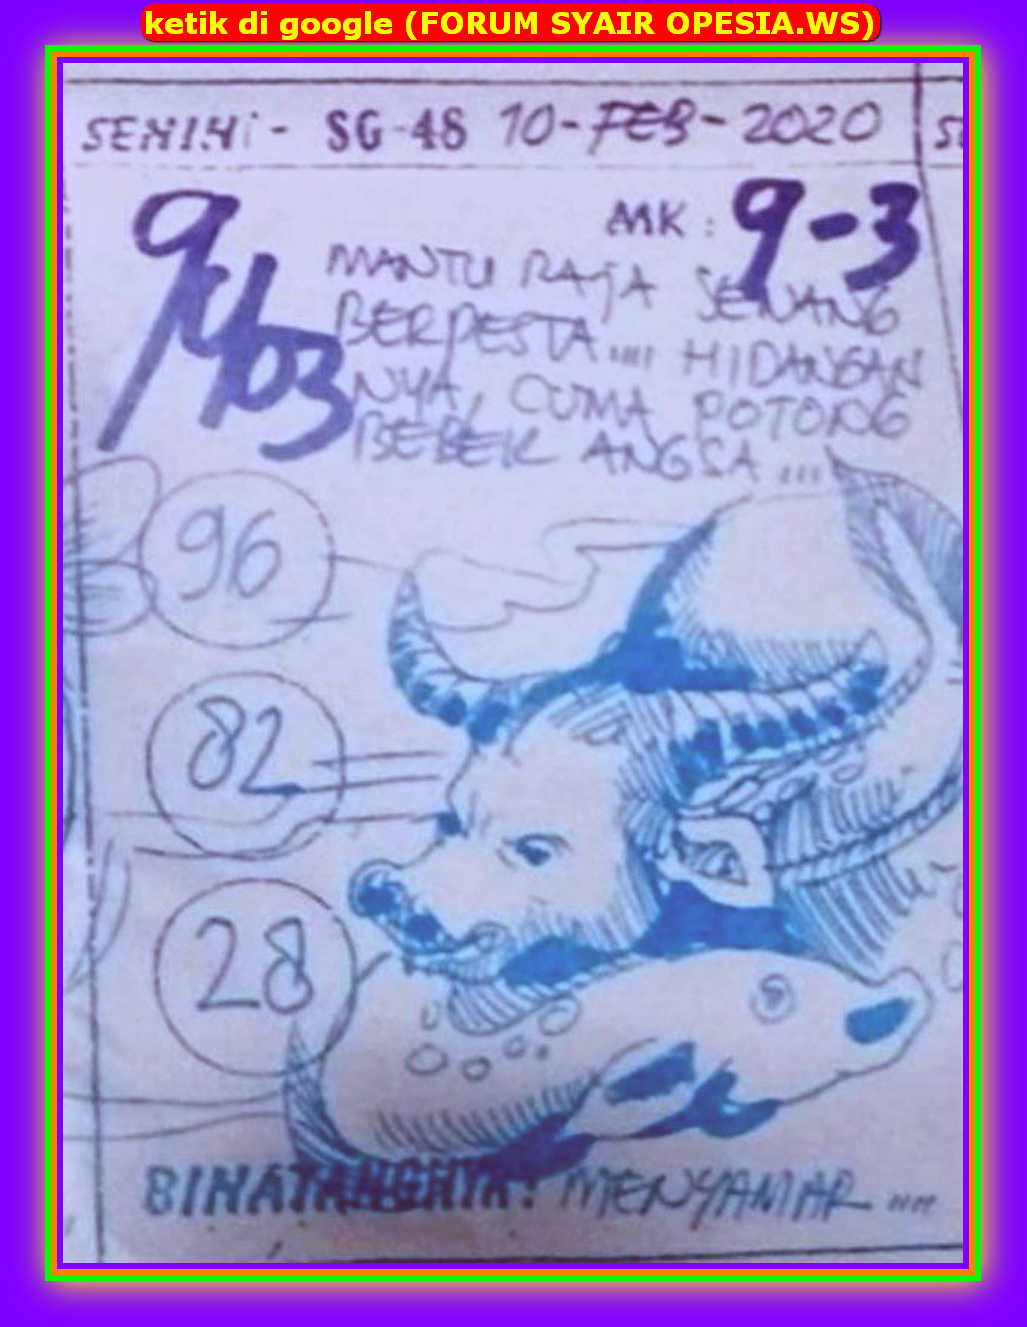 ketik di google (FORUM SYAIR OPESIA.WS)
SENIN - SG-48 10-FEB-2020
9/4/03
MK : 9-3
MANTU RAJA SENANG
BERPESTA.... HIDANGAN
NYA, CUMA POTONG
BEBEK ANGSA ...
96
82
28
BINATANGNYA: MENYAMAR ....